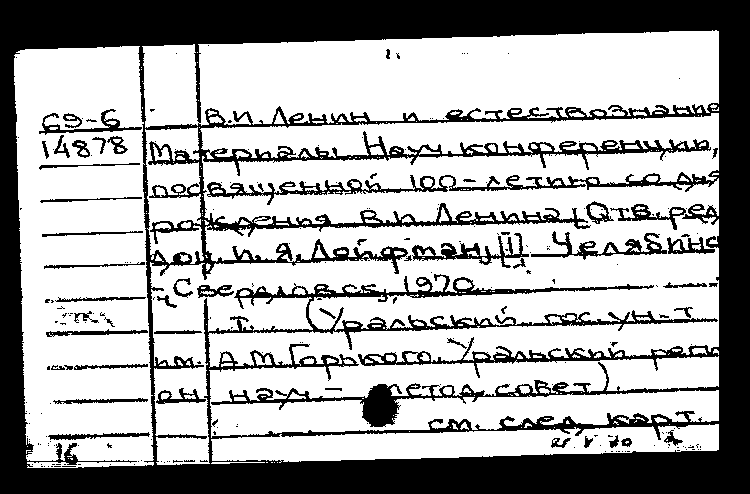 69-6 В.И. Ленин и естествознание
14878 Материалы Науч. конференции,
посвященной 100-летию со дня
рождения В.И. Ленина [Отв. ред.
доц. И. Я. Лойфман, [I] Челябинс
к, Свердловск, 1970
т. (Уральский гос. ун-т
им. А.М. Горького. Уральский реги
он науч- метод. совет).
см. след. карт.
16